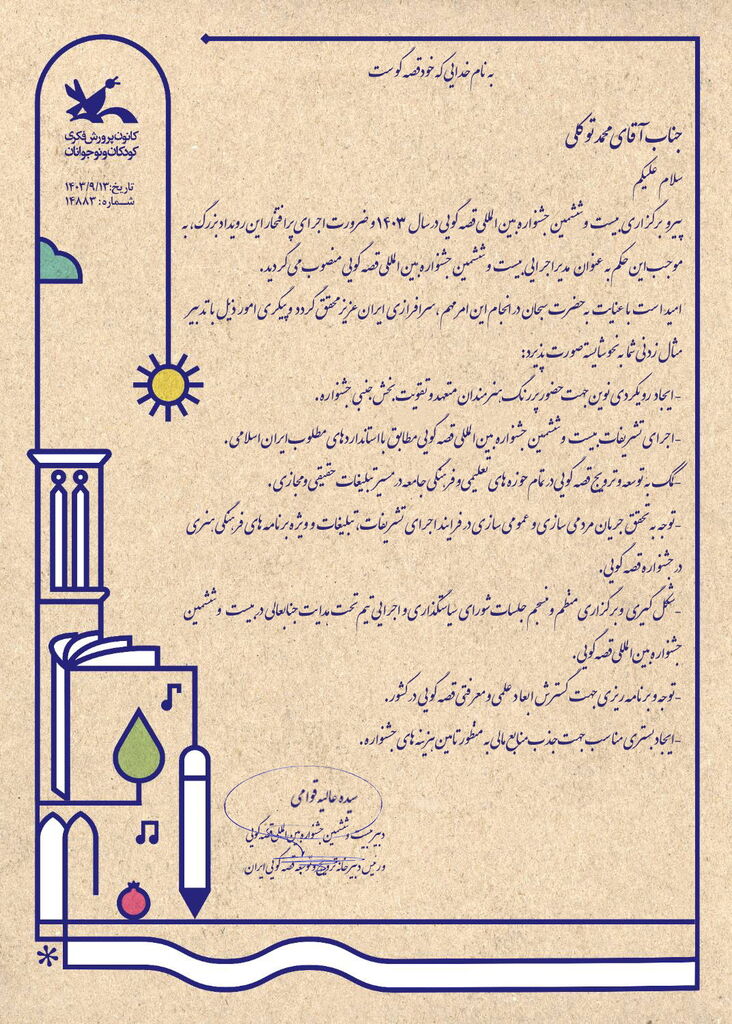 به نام خدایی که خود قصه گوست
کانون پرورش فکری
کودکان و نوجوانان
تاریخ: ۱۴۰۳/۹/۱۳
شماره: ۱۴۸۸۳
جناب آقای محمد توکلی
سلام علیکم
پیرو برگزاری بیست و ششمین جشنواره بین المللی قصه گویی در سال ۱۴۰۳ و ضرورت اجرای پر افتخار این رویداد بزرگ، به
موجب این حکم به عنوان مدیر اجرایی بیست و ششمین جشنواره بین المللی قصه گویی منصوب می گردید.
امید است با عنایت به حضرت سبحان در انجام این امر مهم، سرافرازی ایران عزیز محقق گردد و پیگیری امور ذیل با تدبیر
مثال زدنی شما به نحو شایسته صورت پذیرد:
-ایجاد رویکردی نوین جهت حضور پررنگ هنرمندان متعهد و تقویت بخش جنبی جشنواره.
-اجرای تشریفات بیست و ششمین جشنواره بین المللی قصه گویی مطابق با استانداردهای مطلوب ایران اسلامی.
-کمک به توسعه و ترویج قصه گویی در تمام حوزه های تعلیمی و فرهنگی جامعه در مسیر تبلیغات حقیقی و مجازی.
-توجه به تحقق جریان مردمی سازی و عمومی سازی در فرایند اجرای تشریفات، تبلیغات و ویژه برنامه های فرهنگی هنری
در جشنواره قصه گویی.
-شکل گیری و برگزاری منظم و منسجم جلسات شورای سیاستگذاری و اجرایی تیم تحت هدایت جنابعالی در بیست و ششمین
جشنواره بین المللی قصه گویی.
-توجه و برنامه ریزی جهت گسترش ابعاد علمی و معرفتی قصه گویی در کشور.
-ایجاد بستری مناسب جهت جذب منابع مالی به منظور تامین هزینه های جشنواره.
سیده عالیه قوامی
دبیر بیست و ششمین جشنواره بین المللی قصه گویی
و رئیس دبیرخانه ترویج و توسعه قصه گویی ایران